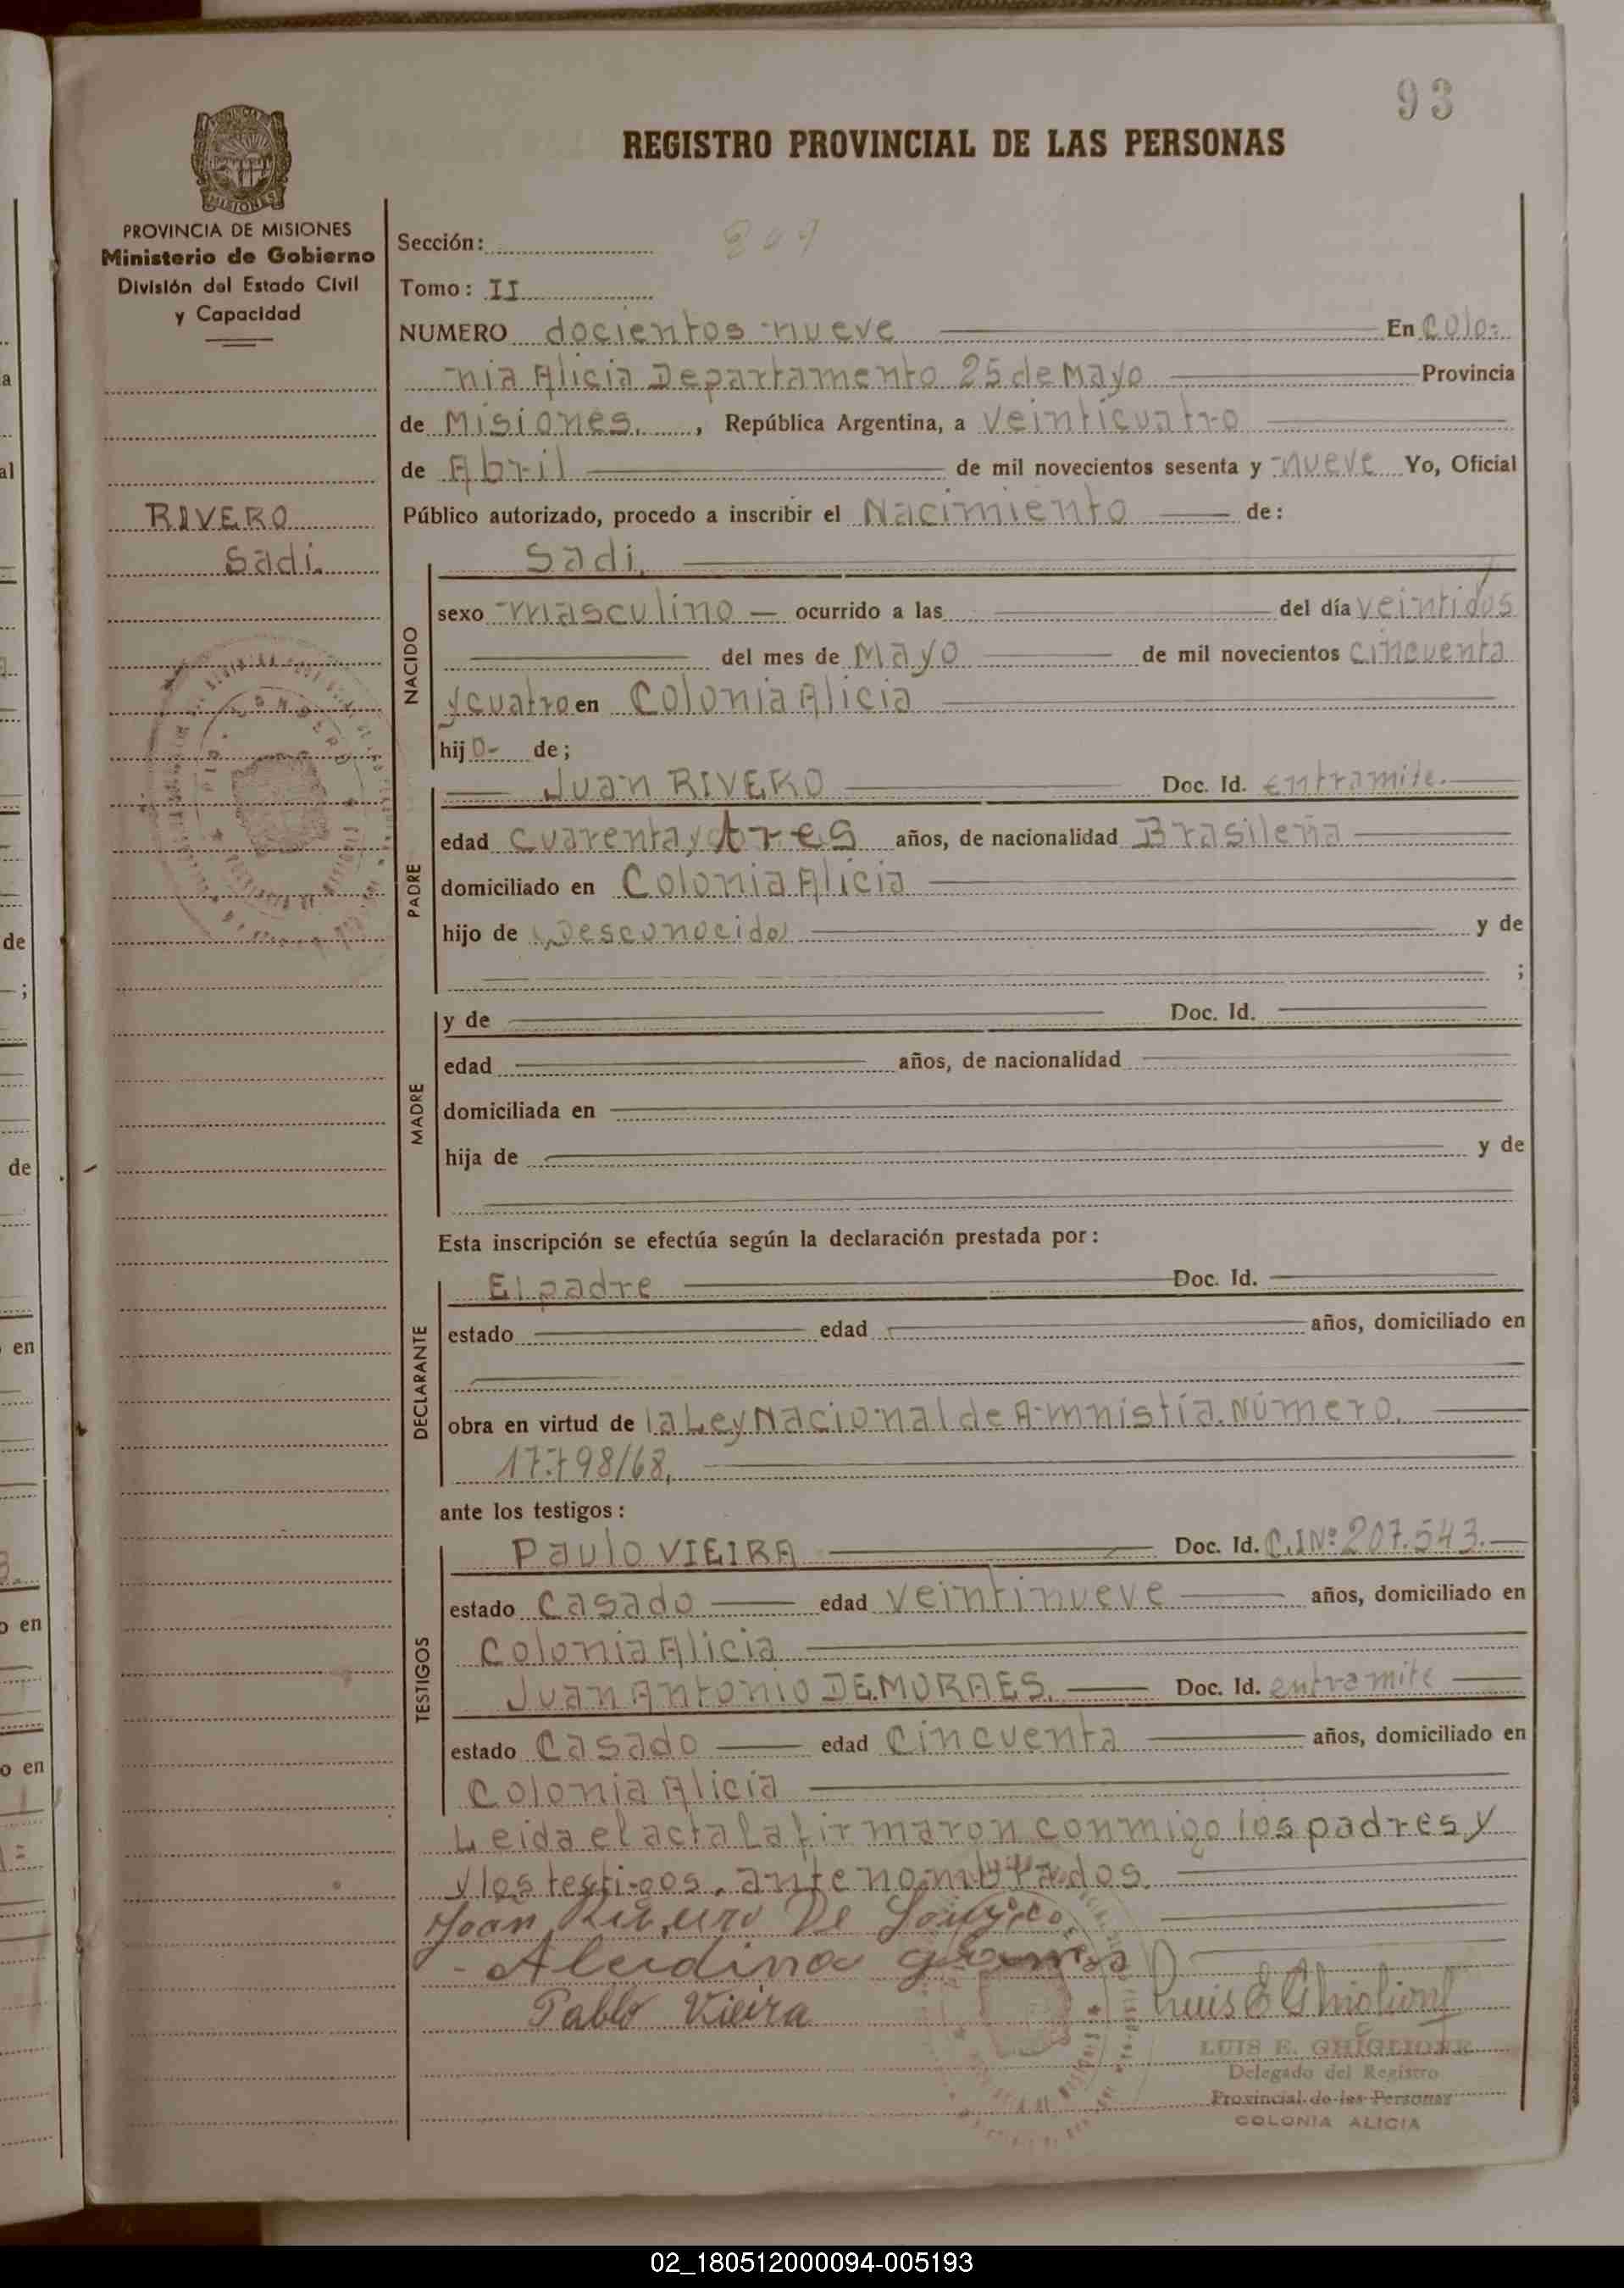 93
REGISTRO PROVINCIAL DE LAS PERSONAS
MISIONES
PROVINCIA DE MISIONES
Ministerio de Gobierno
División del Estado Civil
y Capacidad
RIVERO
Sadi.
Sección:
209
Tomo: II
NUMERO docientos nueve En Colo-
nia Alicia Departamento 25 de Mayo Provincia
de Misiones, República Argentina, a veinticuatro
de Abril de mil novecientos sesenta y nueve Yo, Oficial
Público autorizado, procedo a inscribir el Nacimiento de:
NACIDO
Sadi.
sexo masculino ocurrido a las del día veintidos
del mes de Mayo de mil novecientos cincuenta
y cuatro en Colonia Alicia
hijo de;
PADRE
Juan RIVERO Doc. Id. entramite.
edad cuarenta y tres años, de nacionalidad Brasileña
domiciliado en Colonia Alicia
hijo de (Desconocido) y de
;
MADRE
y de Doc. Id.
edad años, de nacionalidad
domiciliada en
hija de y de
Esta inscripción se efectúa según la declaración prestada por:
DECLARANTE
El padre Doc. Id.
estado edad años, domiciliado en
obra en virtud de la Ley Nacional de Amnistía. Número.
17.798/68,
ante los testigos:
TESTIGOS
Paulo VIEIRA Doc. Id. C.I Nº 207.543.
estado Casado edad veintinueve años, domiciliado en
Colonia Alicia
Juan Antonio DE MORAES. Doc. Id. entramite
estado Casado edad Cincuenta años, domiciliado en
Colonia Alicia
Leida el acta La firmaron conmigo los padres y
y los testigos, ante nombrados.
Pablo Vieira
Luis E Ghiglione
LUIS E. GHIGLIONE
Delegado del Registro
Provincial de las Personas
COLONIA ALICIA
02_180512000094-005193